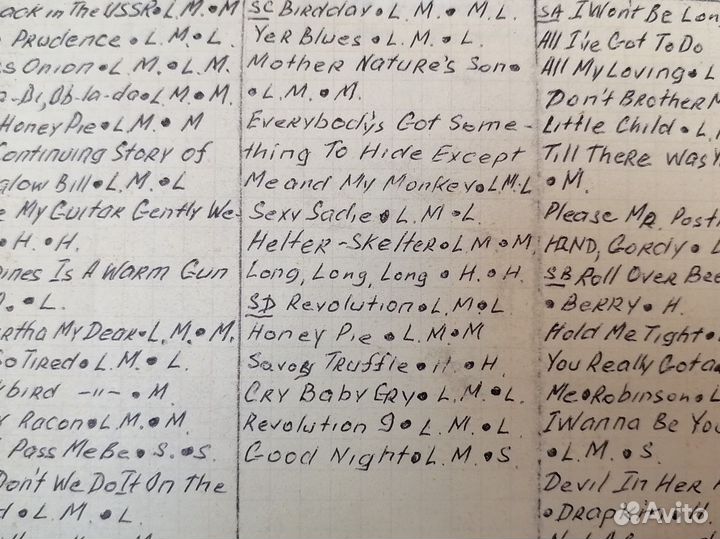 ack in The USSR • L. M • M
Prudence • L. M. • L.
ss Onion • L. M. • L. M.
a-Di, Ob-la-da • L. M • M.
Honey Pie • L. M • M
Continuing Story of
galow Bill • L. M. • L
e My Guitar Gently We-
• H. • H.
pines Is A Warm Gun
• L.
artha My Dear • L. M. • M.
So Tired • L. M • L.
kbird -"- • M.
y Racon • L. M • M.
Pass Me Be • S. • S.
Don't We Do It On the
d • L. M. • L
SC Birdday • L. M. • M. L.
Yer Blues • L. M. • L.
Mother Nature's Son •
• L. M. • M.
Everybody's Got Some -
thing To Hide Except
Me and My Monkey • L M • L
Sexy Sadie • L. M • L.
Helter - Skelter • L. M • M.
Long, Long, Long • H. • H.
SD Revolution • L. M • L
Honey Pie • L. M • M
Savoy Truffle • H • H.
Cry Baby Cry • L. M. • L.
Revolution 9 • L. M. • L
Good Night • L. M • S.
SA I Won't Be Long
All I've Got To Do
All My Loving • L
Don't Brother M
Little Child • L.
Till There Was Y
• M.
Please Mr. Post
HLND, Gordy • L
SB Roll Over Bee
• Berry • H.
Hold Me Tight • L
You Really Gota
Me • Robinson • L
I Wanna Be You
• L. M. • S.
Devil In Her H
• Drapkin • H.
Avito